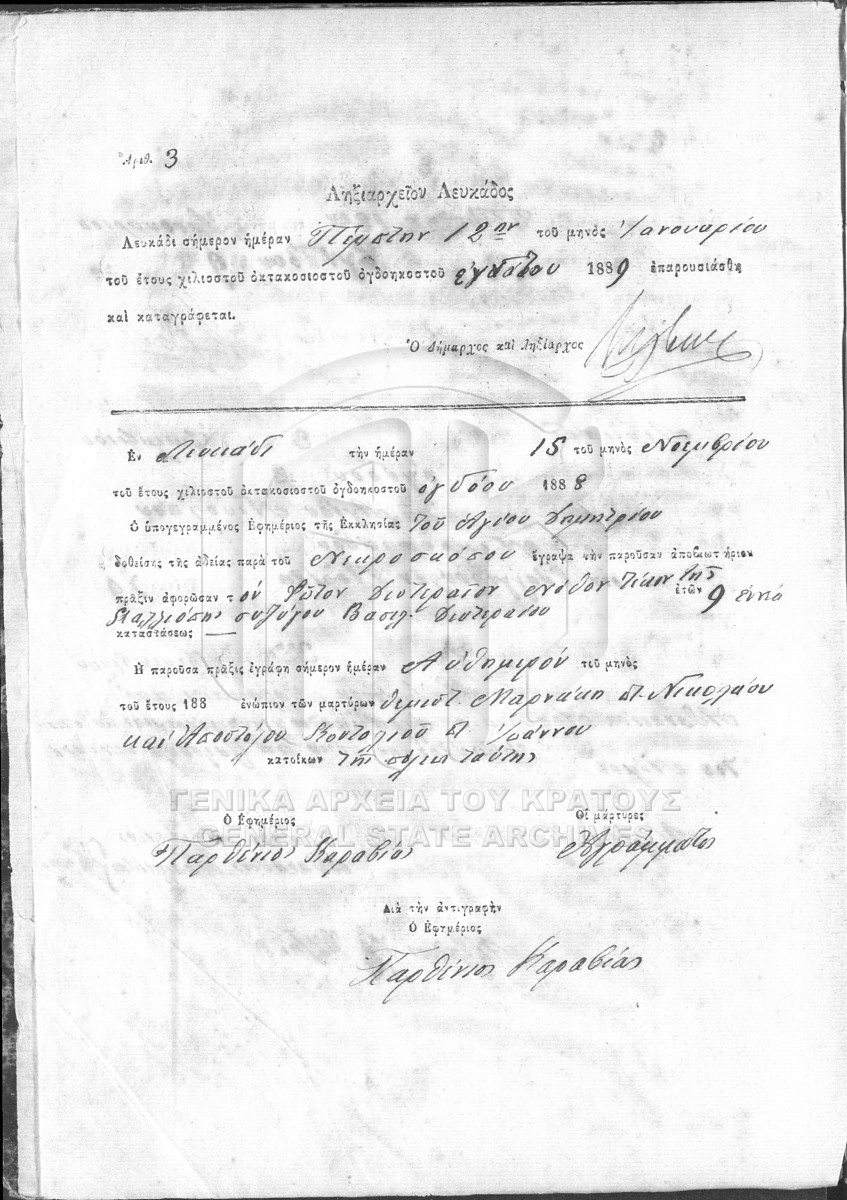 Ἀριθ. 3
Ληξιαρχεῖον Λευκάδος
Λευκάδι σήμερον ἡμέραν Πέμπτην 12ην τοῦ μηνός Ἰανουαρίου
τοῦ ἔτους χιλιοστοῦ ὀκτακοσιοστοῦ ὀγδοηκοστοῦ 1889 ἐπαρουσιάσθη
καὶ καταγράφεται.
Ὁ Δήμαρχος καὶ Ληξίαρχος
Ἐν Λευκάδι τὴν ἡμέραν 15 τοῦ μηνός Νοεμβρίου
τοῦ ἔτους χιλιοστοῦ ὀκτακοσιοστοῦ ὀγδοηκοστοῦ ὀγδόου 1888
Ὁ ὑπογεγραμμένος Ἐφημέριος τῆς Ἐκκλησίας τοῦ Ἁγίου Δημητρίου
δοθείσης τῆς ἀδείας παρὰ τοῦ Νεκροσκόπου ἔγραψα τὴν παροῦσαν ἀποβιωτήριον
πρᾶξιν ἀφορῶσαν τὸν Φῶτον Δευτεραῖον Νόθον τέκνον τῆς
συζύγου Βασιλ. Δευτεραίου ἐτῶν 9 ἐννέα
καταστάσεως —
Ἡ παροῦσα πρᾶξις ἐγράφη σήμερον ἡμέραν Αὐθημερόν τοῦ μηνός
τοῦ ἔτους 188 ἐνώπιον τῶν μαρτύρων Θεμιστ. Μαρνάκη Νικολάου
καὶ Ἀποστόλου Ἰωάννου
κατοίκων τῆς πόλεως ταύτης
ΓΕΝΙΚΑ ΑΡΧΕΙΑ ΤΟΥ ΚΡΑΤΟΥΣ
GENERAL STATE ARCHIVES
Ὁ Ἐφημέριος Οἱ μάρτυρες
Παρθένιος Καραβίας Ἀγράμματοι
Διὰ τὴν ἀντιγραφὴν
Ὁ Ἐφημέριος
Παρθένιος Καραβίας